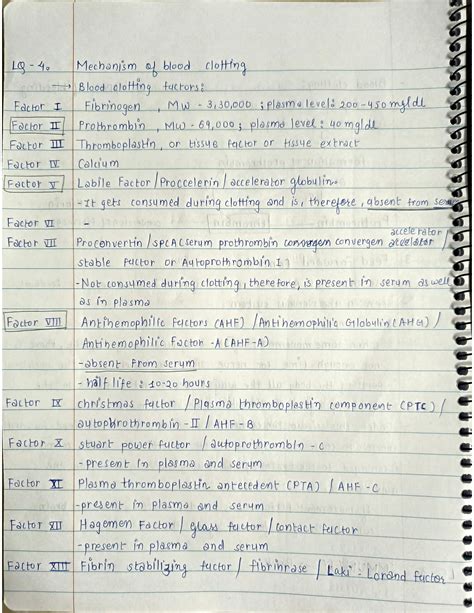 LQ - 4. Mechanism of blood clotting
→ Blood clotting factors:
Factor I Fibrinogen , MW - 3,30,000 ; plasma level: 200-450 mg/dl
Factor II Prothrombin, MW - 69,000; plasma level: 40 mg/dl
Factor III Thromboplastin, or tissue factor or tissue extract
Factor IV Calcium
Factor V Labile Factor / Proccelerin / accelerator globulin.
- It gets consumed during clotting and is, therefore, absent from serum
Factor VI -
accelerator /
Factor VII Proconvertin / SPCA (serum prothrombin convergen
stable factor or Autoprothrombin I)
- Not consumed during clotting, therefore, is present in serum as well
as in plasma
Factor VIII Antihemophilic factors (AHF) / Antihemophilic Globulin (AHG) /
Antihemophilic Factor -A (AHF-A)
- absent from serum
- half life : 10-20 hours
Factor IX christmas factor / Plasma thromboplastin component (PTC) /
autophrothrombin - II / AHF-B
Factor X stuart power factor / autoprothrombin - C
- present in plasma and serum
Factor XI Plasma thromboplastin antecedent (PTA) / AHF - C
- present in plasma and serum
Factor XII Hagemen Factor / glass factor / contact factor
- present in plasma and serum
Factor XIII Fibrin stabilizing factor / fibrinrase / Laki : Lorand factor